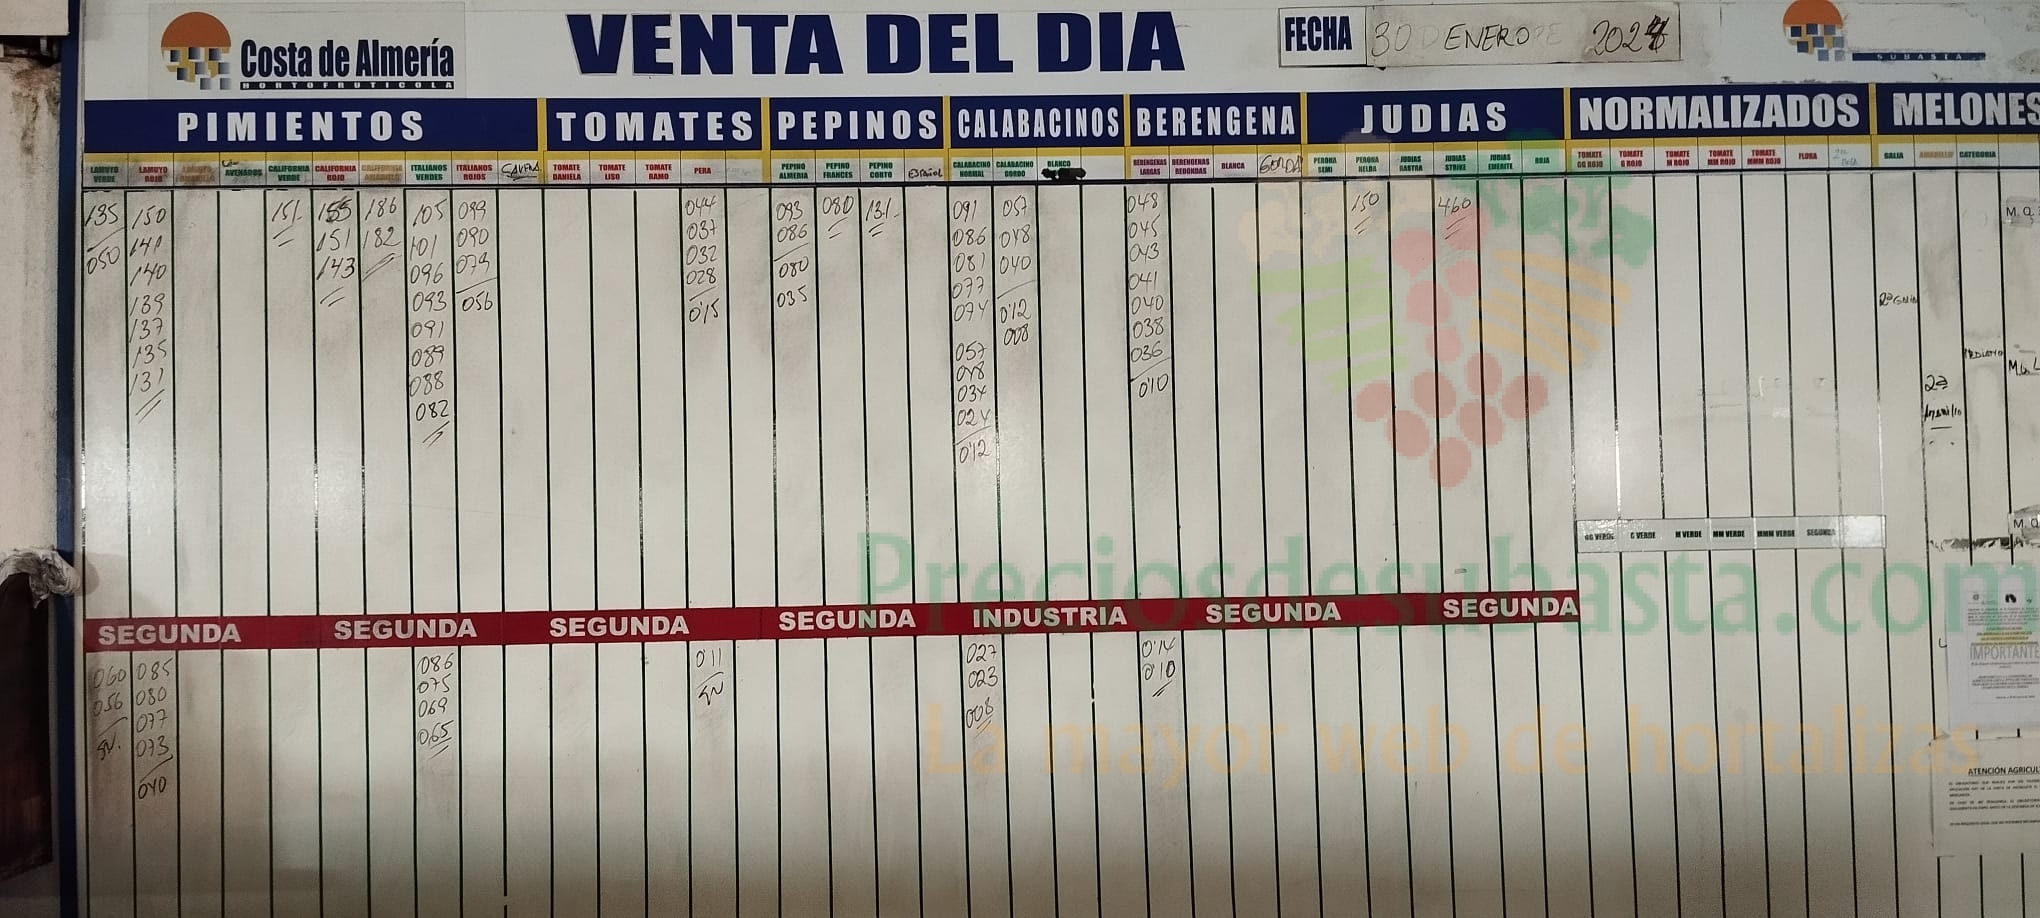 Costa de Almería
HORTOFRUTICOLA
VENTA DEL DIA
FECHA 30 DE ENERO DE 2024
SUBASTA
PIMIENTOS TOMATES PEPINOS CALABACINOS BERENGENA JUDIAS NORMALIZADOS MELONES
LAMUYO VERDE
LAMUYO ROJO
ASURADOS
CALIFORNIA VERDE
CALIFORNIA ROJO
CALIFORNIA AMARILLO
ITALIANOS VERDES
ITALIANOS ROJOS
TOMATE DANIELA
TOMATE LISO
TOMATE RAMO
PERA
PEPINO ALMERIA
PEPINO FRANCES
PEPINO CORTO
ESPAÑOL
CALABACINO NORMAL
CALABACINO GORDO
BLANCO
BERENGENAS LARGAS
BERENGENAS REDONDAS
BLANCA
GORDA
PERONA SEMI
PERONA HELDA
JUDIAS RASTRA
JUDIAS STRIKE
JUDIAS EMERITE
ROJA
TOMATE GG ROJO
TOMATE G ROJO
TOMATE M ROJO
TOMATE MM ROJO
TOMATE MMM ROJO
FLORA
GALIA
AMARILLO
CATEGORIA
135
050
150
141
140
139
137
135
131
151
155
151
143
186
182
105
101
096
093
091
089
088
082
099
090
079
056
044
037
032
028
0'15
093
086
080
035
080
131
091
086
081
077
074
057
048
034
024
0'12
057
048
040
0'12
008
048
045
043
041
040
038
036
0'10
150
460
M. Q.
2ª GALIA
2ª
Amarillo
GG VERDE G VERDE M VERDE MM VERDE MMM VERDE SEGUNDA
Preciosdesubasta.com
SEGUNDA SEGUNDA SEGUNDA SEGUNDA INDUSTRIA SEGUNDA SEGUNDA
060
056
SV.
085
080
077
073
040
086
075
069
065
0'11
SV
027
023
008
0'14
0'10
La mayor web de hortalizas
IMPORTANTE
ATENCIÓN AGRICUL